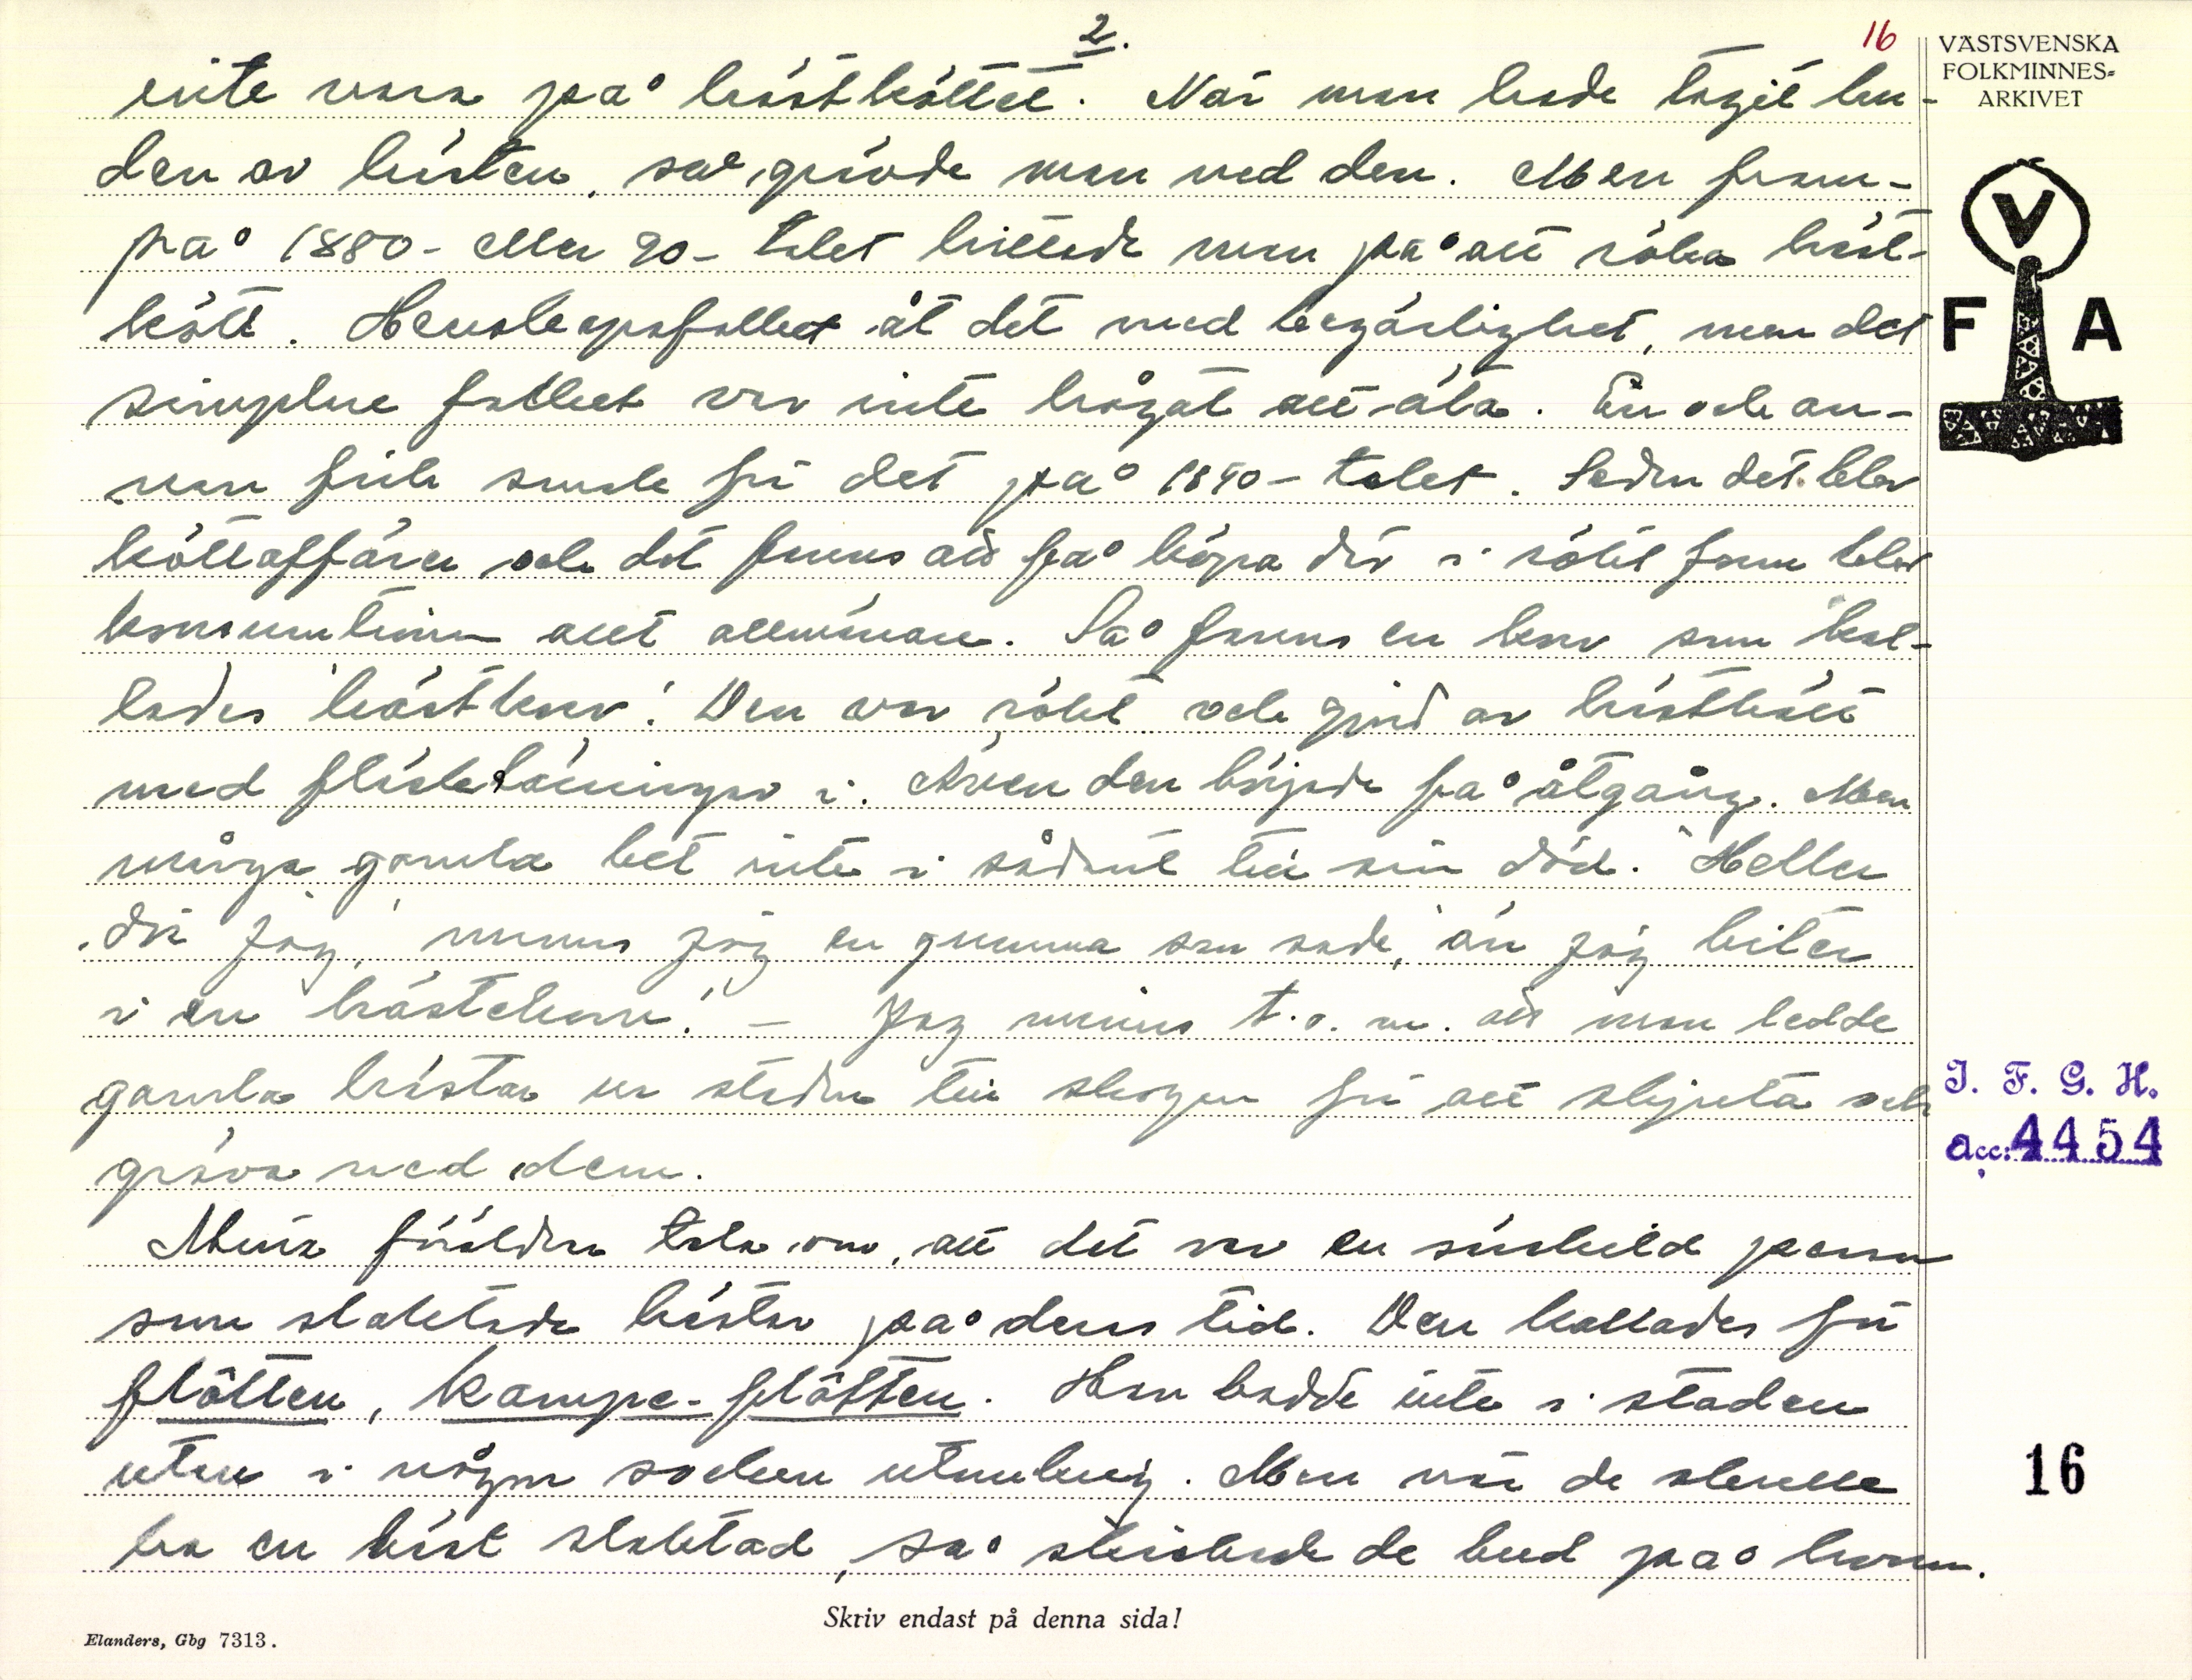 2.
16
VÄSTSVENSKA
FOLKMINNES-
ARKIVET
inte vara på hästköttet. När man hade tagit hu-
den av hästen, så grävde man ned den. Men fram-
på 1880- eller 90-talet hittade man på att röka häst-
kött. Herrskapsfolket åt det med begärlighet, men det
simplare folket var inte hågat att äta. En och an-
nan fick smak för det på 1890-talet. Sedan det blev
köttaffärer och det fanns att få köpa där i rökt form blev
konsumtionen mer allmän. Så fanns en korv som kal-
lades "hästkorv". Den var rökt och gjord av hästkött
med fläsktärningar i. Även den började få åtgång. Men
många gamla bet inte i sådant till sin död. "Heller
dör jag," minns jag en gumma som sade, "än jag biter
i en hästekorv." – Jag minns t.o.m. att man ledde
gamla hästar ur staden till skogen för att skjuta och
gräva ned dem.
Mina föräldrar tala om, att det var en särskild person
som slaktade hästar på deras tid. Den kallades för
flåtten, kampe-flåtten. Han bodde inte i staden
utan i någon socken utomkring. Men när de skulle
ha en häst slaktad, så skickade de bud på honom.
V
F A
I. F. G. H.
acc: 4454
16
Skriv endast på denna sida!
Elanders, Gbg 7313.